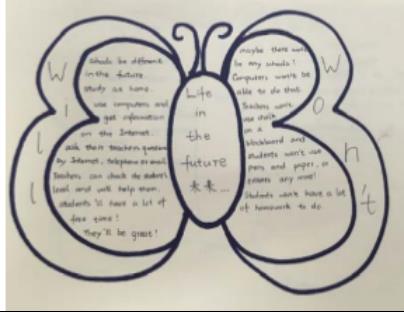 Will
schools be different
in the future
study at home.
use computers and
get information
on the Internet.
ask their teachers questions
by Internet, telephone or email
Teachers can check the student's
level and will help them.
students'll have a lot of
free time!
They'll be great!
Life
in
the
future
未来...
maybe there won't
be any schools!
Computers won't be
able to do that.
Teachers won't
use chalk
on a
blackboard and
students won't use
pens and paper, or
erasers any more!
Students won't have a lot
of homework to do.
Won't